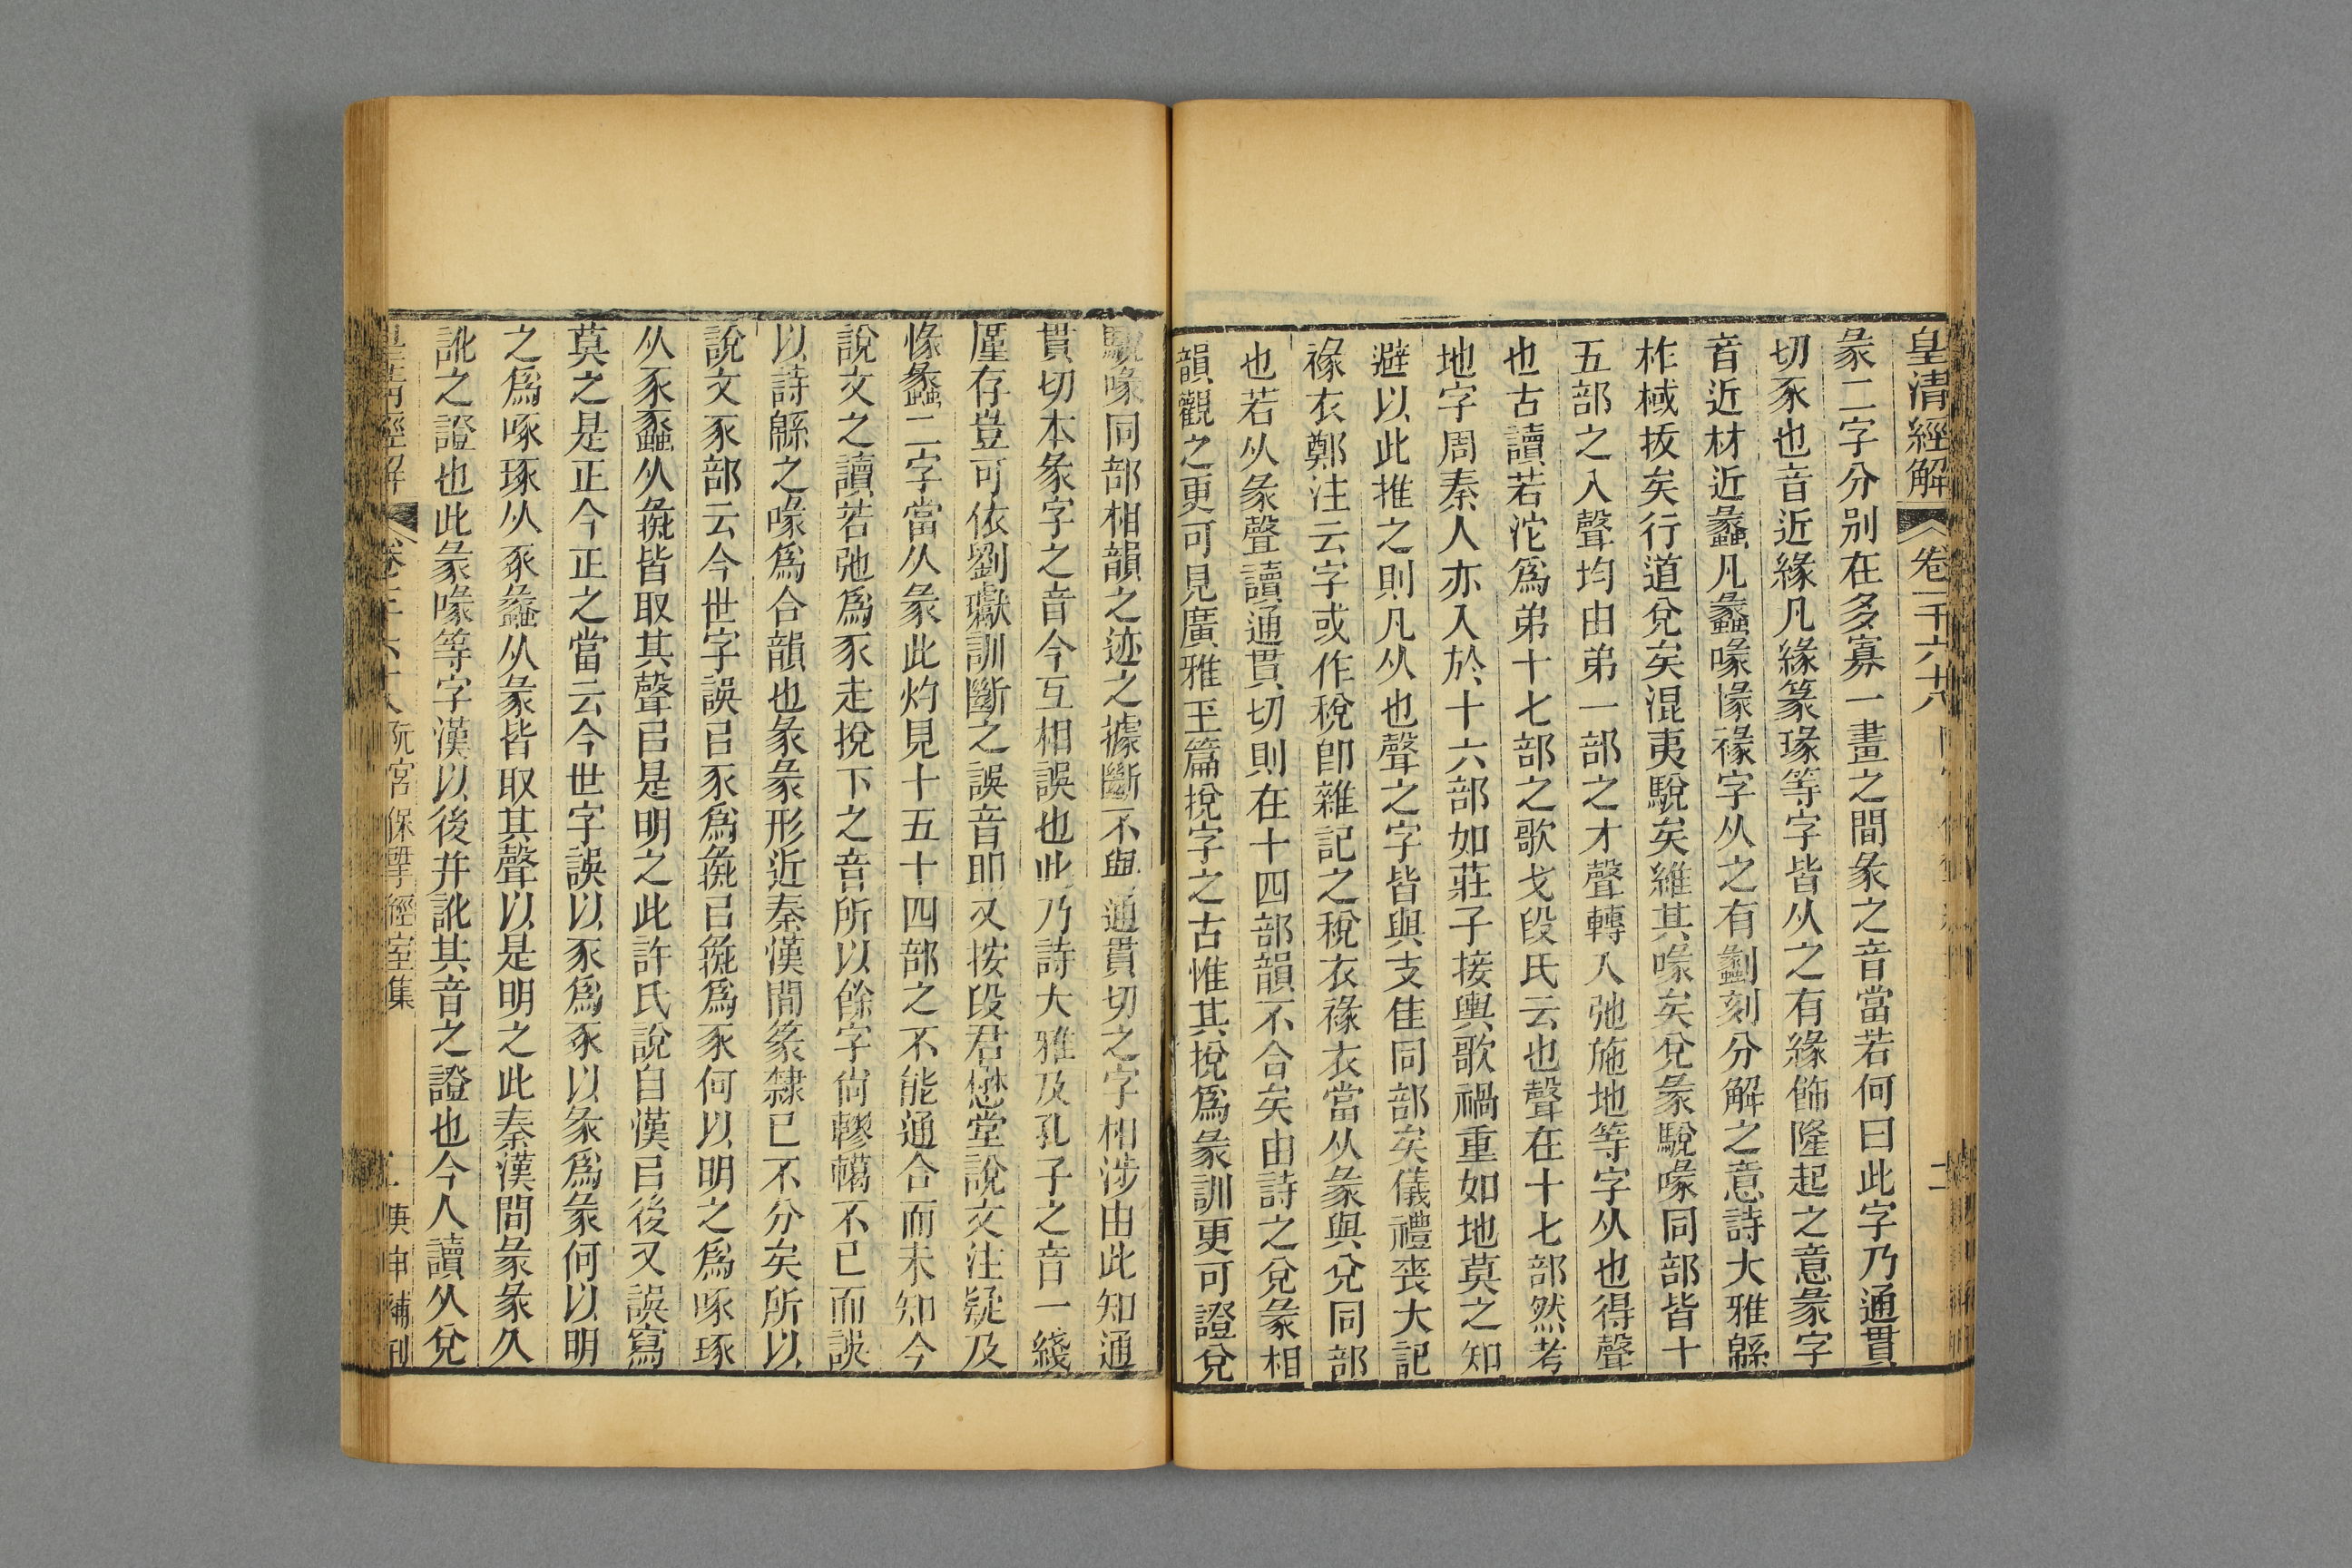 皇清經解 卷一千六十八 二
彖二字分別在多寡一畫之間彖之音當若何曰此字乃通貫
切豕也音近緣凡緣篆瑑等字皆从之有緣飾隆起之意彖字
音近材近蠡凡蠡喙㥟禒字从之有劙刻分解之意詩大雅緜
柞棫拔矣行道兌矣混夷駾矣維其喙矣兌彖駾喙同部皆十
五部之入聲均由弟一部之才聲轉入弛施地等字从也得聲
也古讀若沱爲弟十七部之歌戈段氏云也聲在十七部然考
地字周秦人亦入於十六部如莊子接輿歌禍重如地莫之知
避以此推之則凡从也聲之字皆與支佳同部矣儀禮喪大記
褖衣鄭注云字或作稅卽雜記之稅衣褖衣當从彖與兌同部
也若从彖聲讀通貫切則在十四部韻不合矣由詩之兌彖相
韻觀之更可見廣雅玉篇挩字之古惟其挩爲彖訓更可證兌
駾喙同部相韻之迹之據斷不與通貫切之字相涉由此知通
貫切本彖字之音今互相誤也此乃詩大雅及孔子之音一綫
厪存豈可依劉瓛訓斷之誤音耶又按段君懋堂說文注疑及
㥟蠡二字當从彖此灼見十五十四部之不能通合而未知今
說文之讀若弛爲豕走挩下之音所以餘字尙轇轕不已而誤
以詩緜之喙爲合韻也彖彖形近秦漢間篆隸已不分矣所以
說文豕部云今世字誤㠯豕爲彘㠯彘爲豕何以明之爲啄琢
从豕蠡从彘皆取其聲㠯是明之此許氏說自漢㠯後又誤寫
莫之是正今正之當云今世字誤以豕爲豕以彖爲彖何以明
之爲啄琢从豕蠡从彖皆取其聲以是明之此秦漢間彖彖久
訛之證也此彖喙等字漢以後并訛其音之證也今人讀从兌
皇淸經解 卷 阮宮保揅經室集 庚申補刊